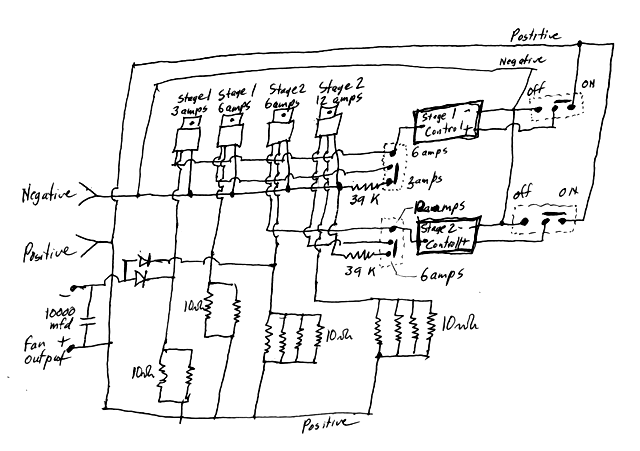 Postitive
Negative
Off
ON
Stage 1
3 amps
Stage 1
6 amps
Stage 2
6 amps
Stage 2
12 amps
Stage 1 -
Control +
6 amps
3 amps
39 K
Negative
Off
ON
12 amps
Stage 2 -
Control +
Positive
39 K
6 amps
-
10000
mfd
Fan +
output
10 ωh
10 ωh
10 ωh
10 ωh
Positive